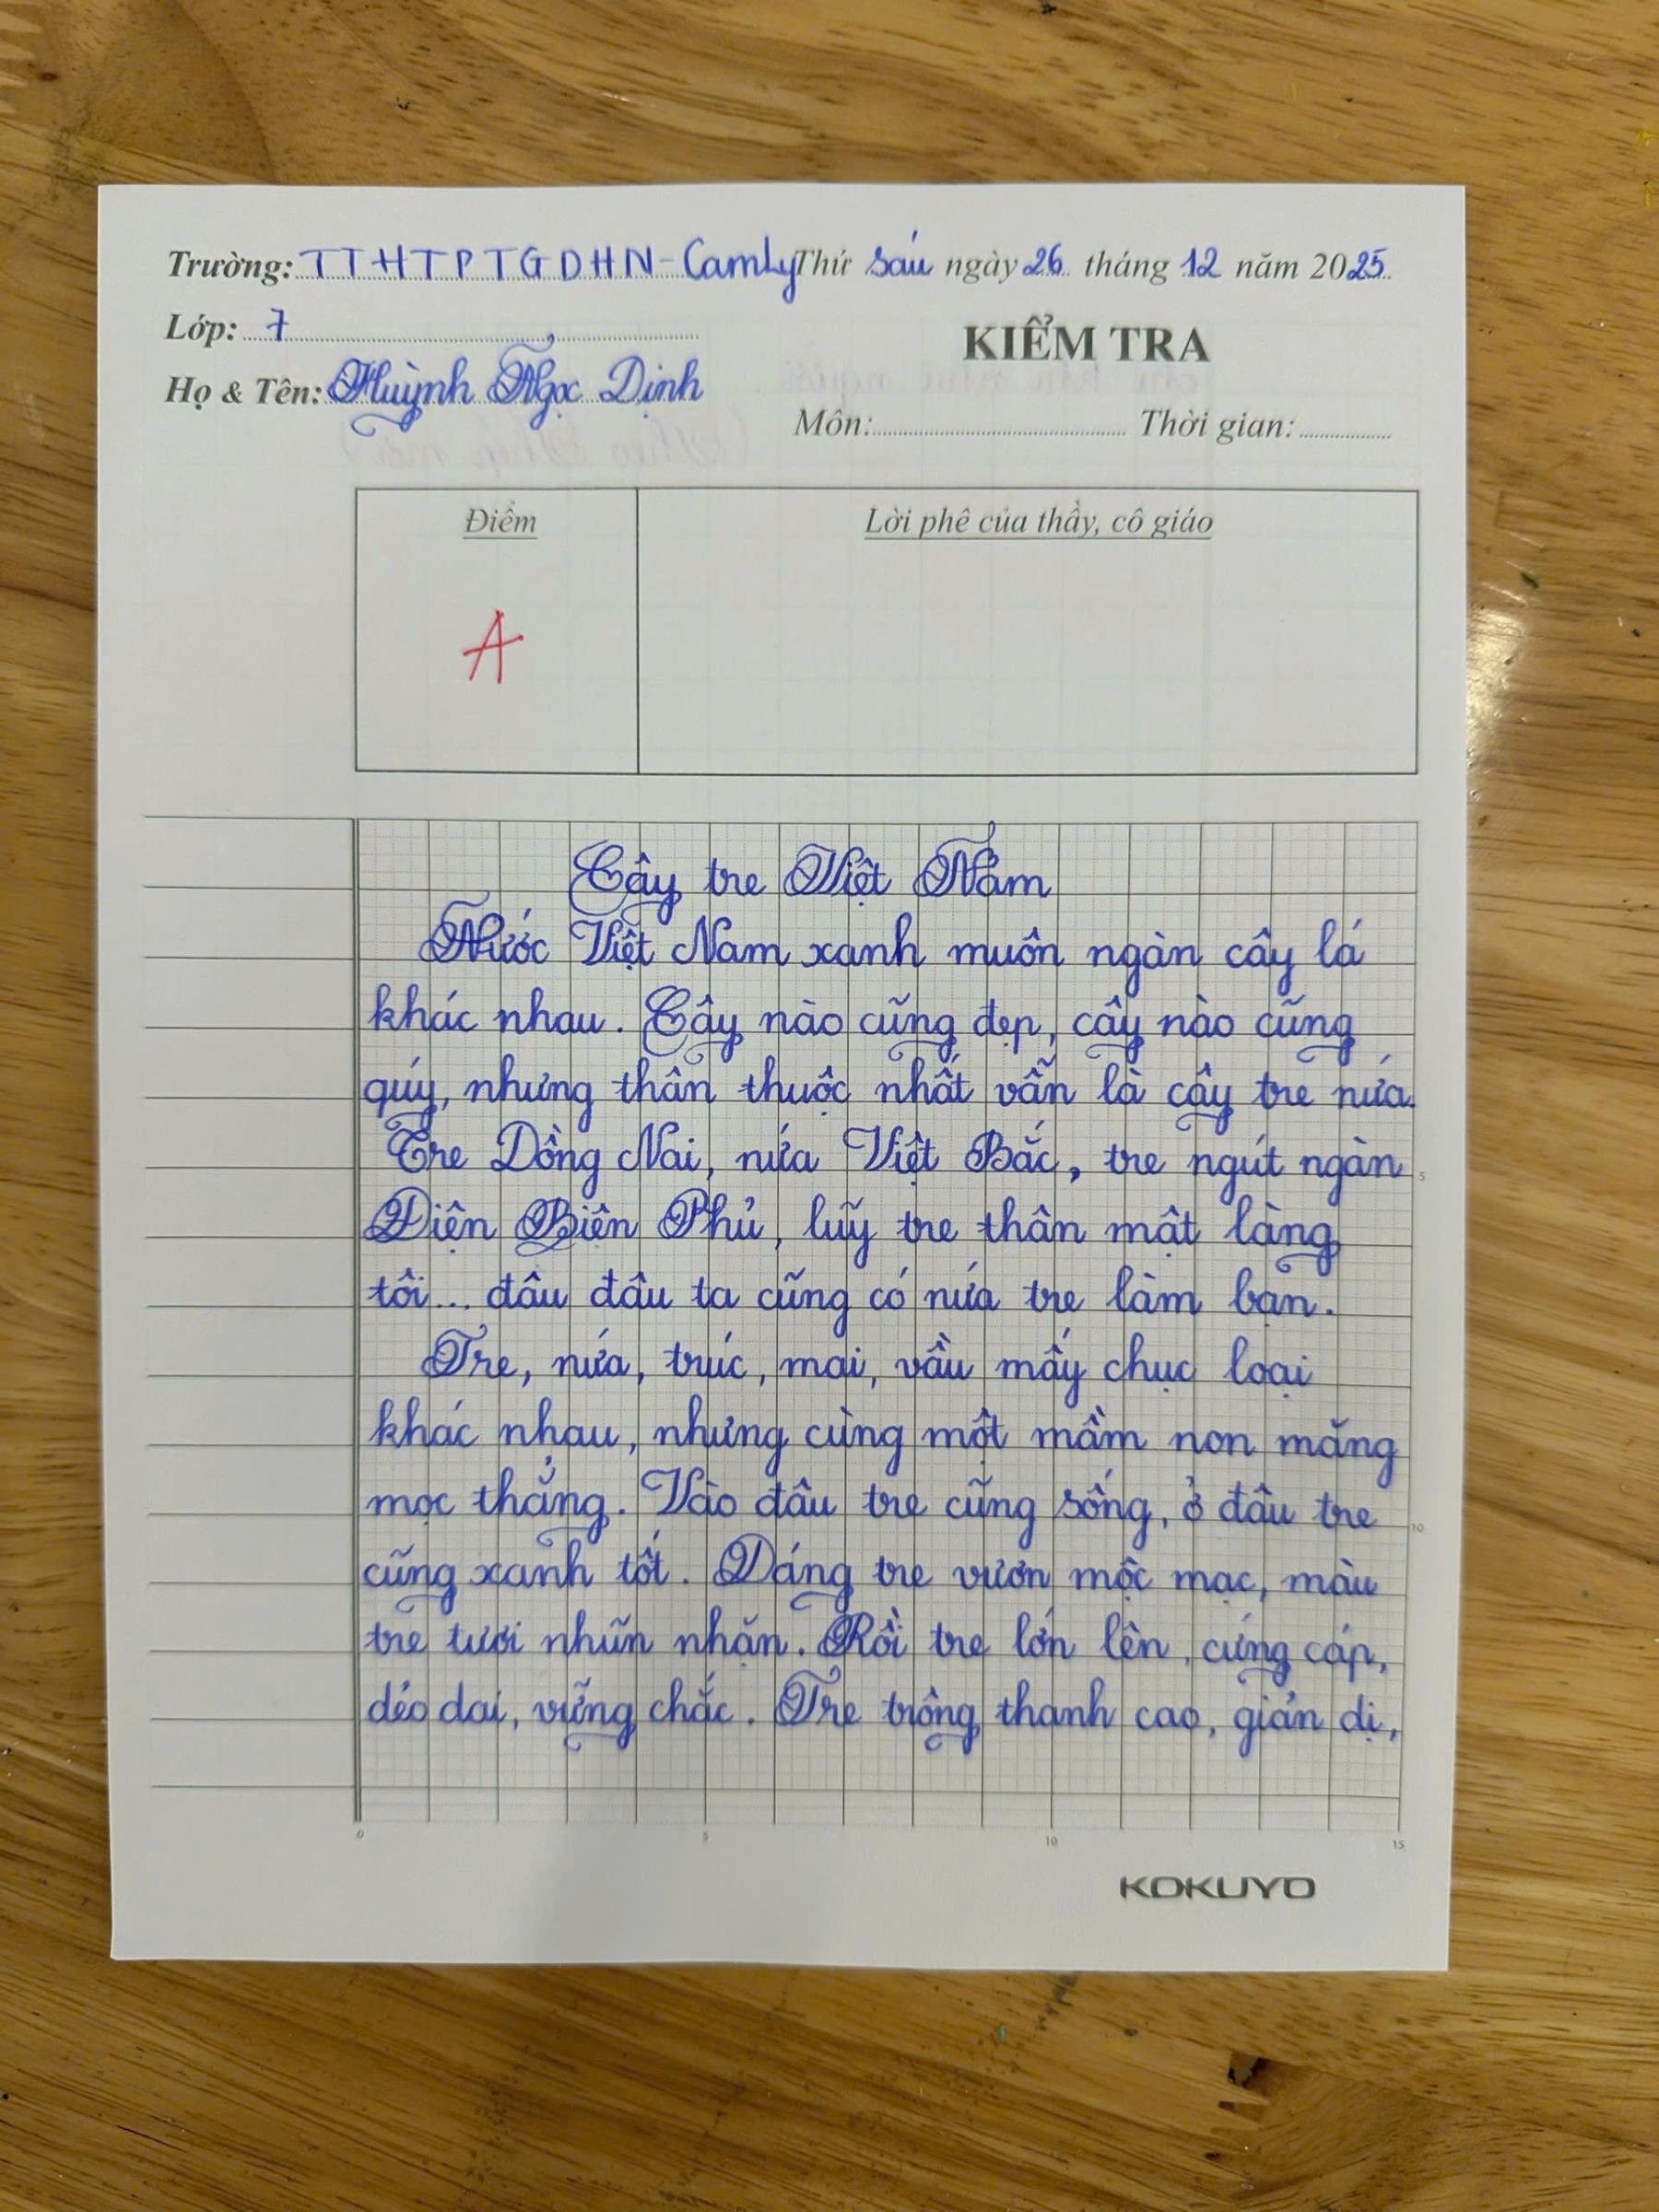 Trường: TTHTPTGDHN-CamLy Thứ sáu ngày 26 tháng 12 năm 2025
Lớp: 7
KIỂM TRA
Họ & Tên: Huỳnh Ngọc Định
Môn: Thời gian:
Điểm
Lời phê của thầy, cô giáo
A
Cây tre Việt Nam
Nước Việt Nam xanh muôn ngàn cây lá
khác nhau. Cây nào cũng đẹp, cây nào cũng
quý, nhưng thân thuộc nhất vẫn là cây tre nứa.
Tre Đồng Nai, nứa Việt Bắc, tre ngút ngàn
Điện Biên Phủ, luỹ tre thân mật làng
tôi... đâu đâu ta cũng có nứa tre làm bạn.
Tre, nứa, trúc, mai, vầu mấy chục loại
khác nhau, nhưng cùng một mầm non măng
mọc thẳng. Vào đâu tre cũng sống, ở đâu tre
cũng xanh tốt. Dáng tre vươn mộc mạc, màu
tre tươi nhũn nhặn. Rồi tre lớn lên, cứng cáp,
dẻo dai, vững chắc. Tre trông thanh cao, giản dị,
5
10
0 5 10 15
KOKUYO